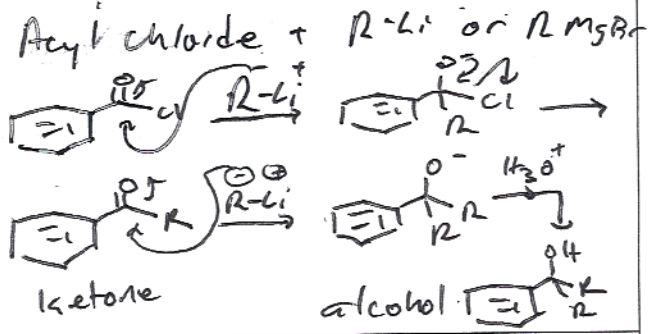 Acyl chloride + R-Li or RMgBr
O Cl R-Li + O- Cl R
O R - + R-Li O- R R H3O+
OH R R
ketone alcohol